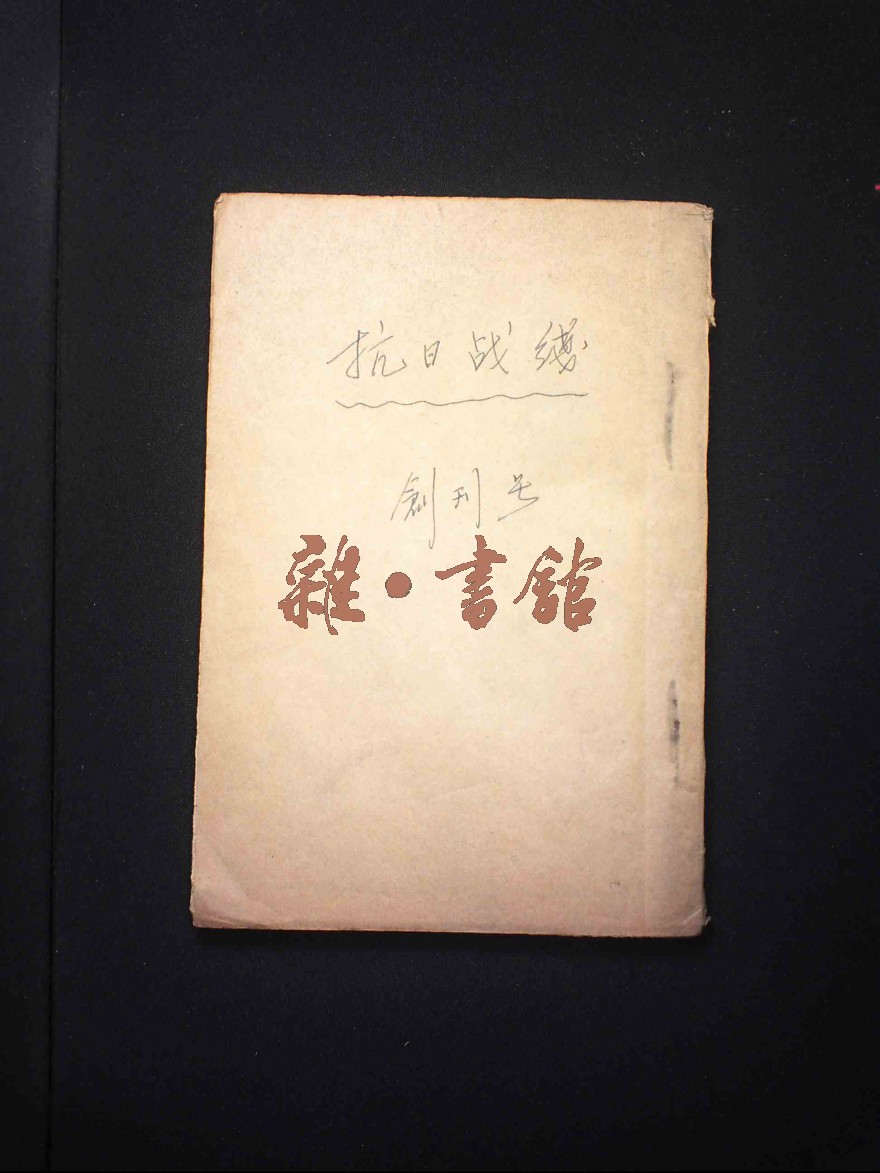 抗日战线
創刊号
雜·書館